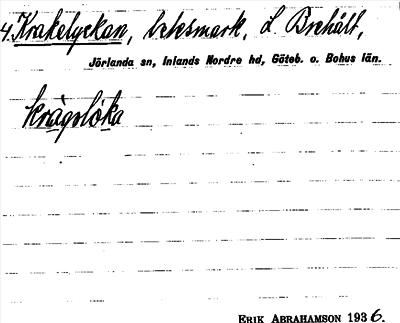 4. Krakelyckan, betesmark, L. Brehált,
Jörlanda sn, Inlands Nordre hd, Göteb. o. Bohus län.
krågslóka
ERIK ABRAHAMSON 1936.